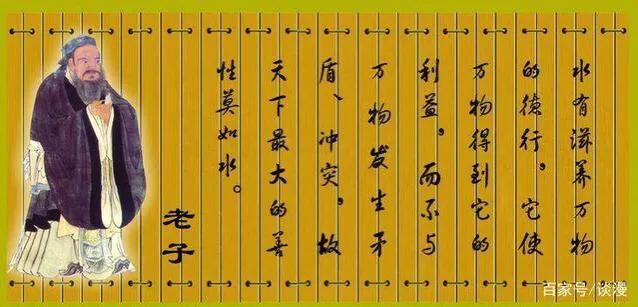 水有滋养万物
的德行，它使
万物得到它的
利益，而不与
万物发生矛
盾、冲突，故
天下最大的善
性莫如水。
老子
百家号/谈漫